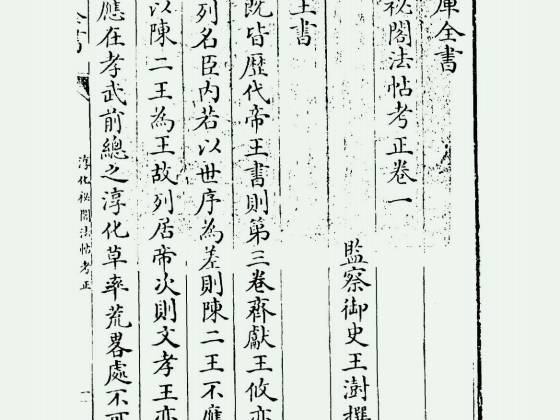 庫全書
秘閣法帖考正卷一
監察御史王澍撰
王書
既皆歷代帝王書則第三卷齊獻王攸亦
列名臣内若以世序為差則陳二王不應
以陳二王為王故列居帝次則文孝王亦
應在孝武前總之淳化草率荒畧處不可
淳化秘閣法帖考正
一
全書